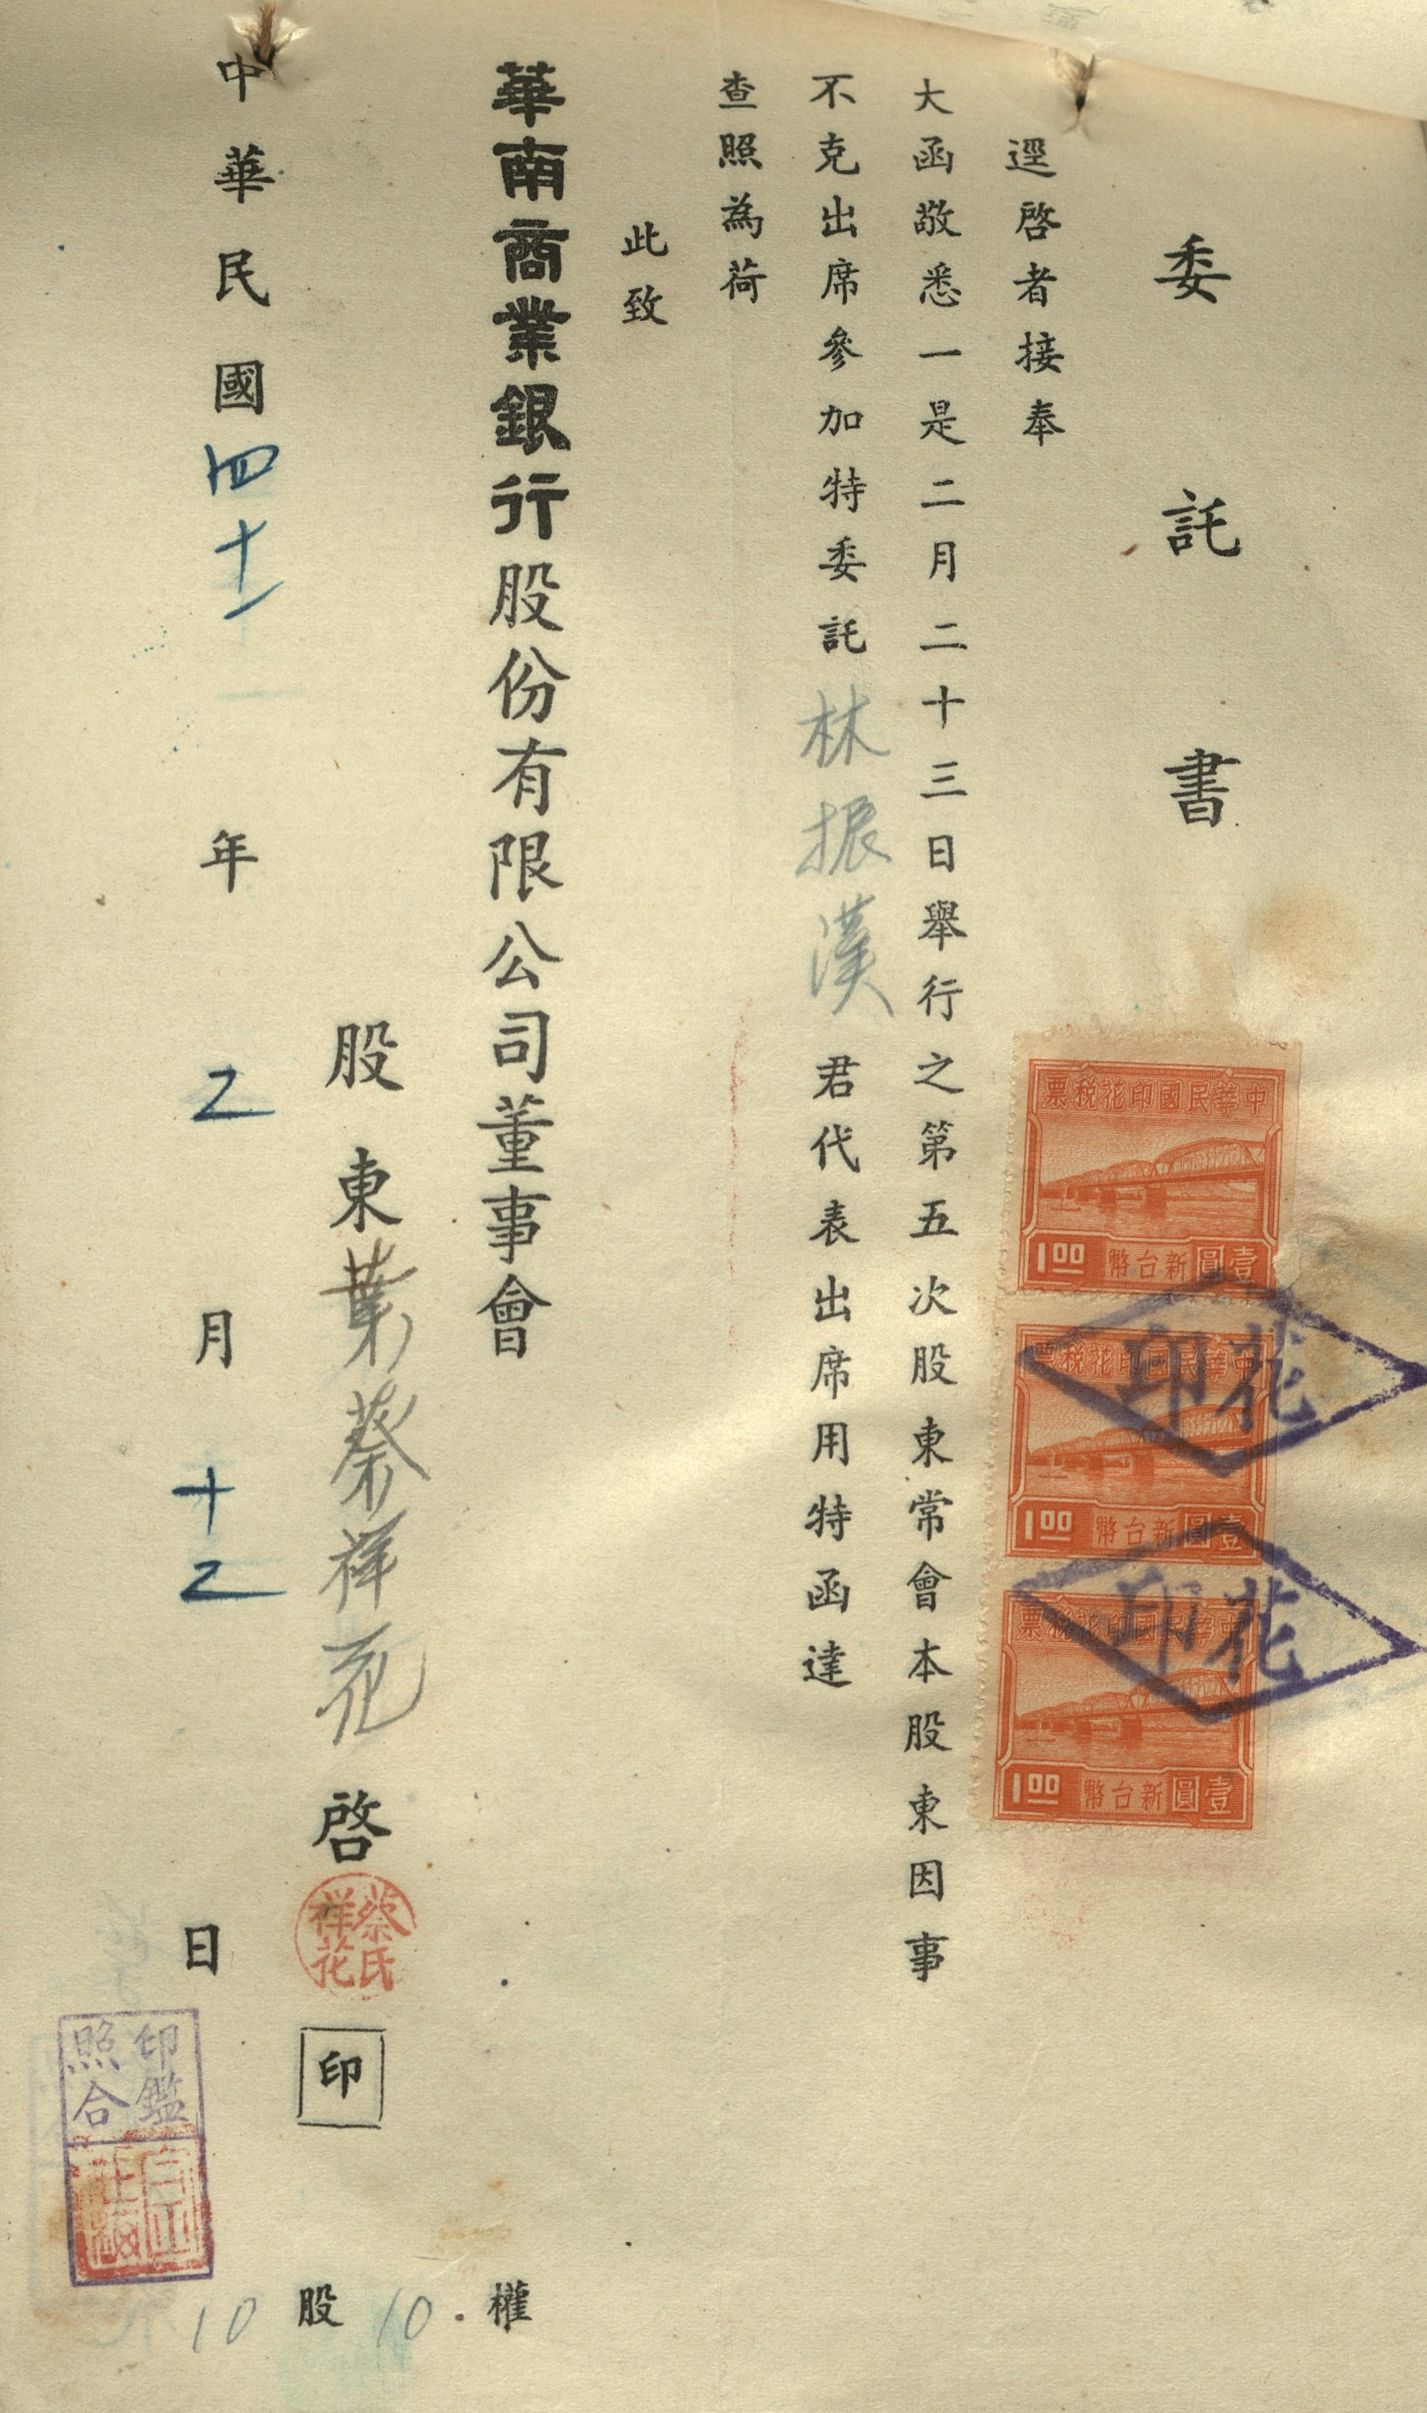 委託書
逕啓者接奉
大函敬悉一是二月二十三日舉行之第五次股東常會本股東因事
不克出席參加特委託林振漢君代表出席用特函達
查照為荷
此致
華南商業銀行股份有限公司董事會
股東葉蔡祥花啓
蔡氏祥花
印
中華民國四十一年乙月十乙日
權10股10
印鑑照合
中華民國印花税票
壹圓新台幣
1.00
中華民國印花税票
壹圓新台幣
1.00
中華民國印花税票
壹圓新台幣
1.00
花印
花印